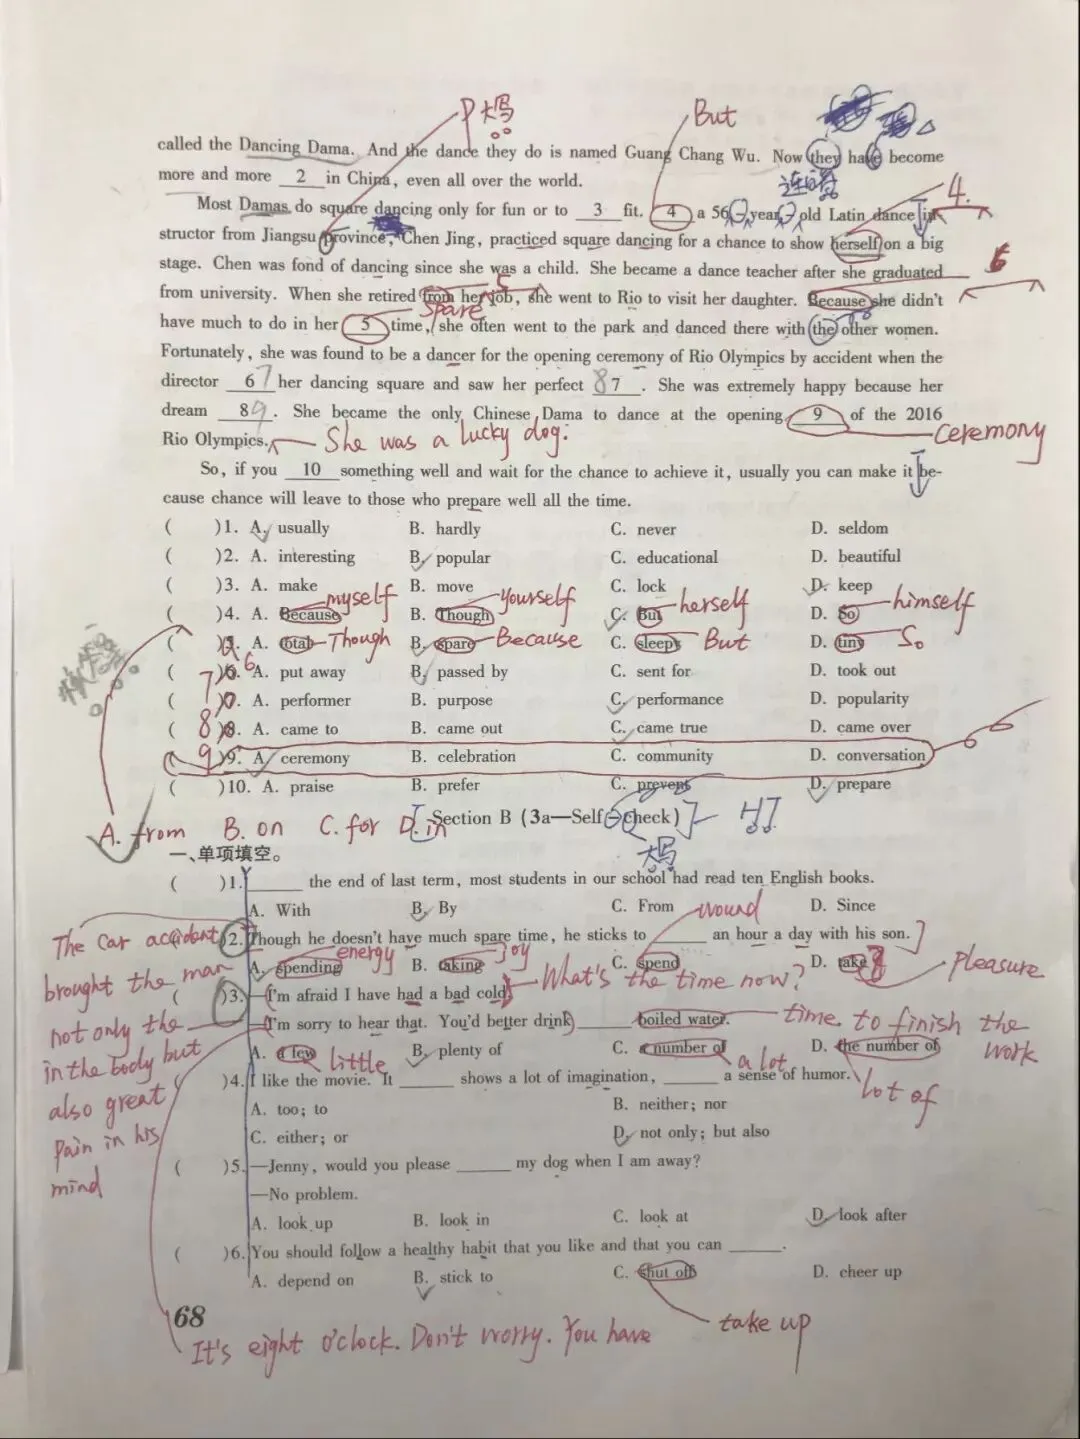 P 大写
But
called the Dancing Dama. And the dance they do is named Guang Chang Wu. Now they have become
more and more 2 in China, even all over the world.
Most Damas do square dancing only for fun or to 3 fit. 4 a 56-year-old Latin dance in-
4.
structor from Jiangsu province, Chen Jing, practiced square dancing for a chance to show herself on a big
stage. Chen was fond of dancing since she was a child. She became a dance teacher after she graduated
6
5
from university. When she retired from her job, she went to Rio to visit her daughter. Because she didn't
spare
have much to do in her 5 time, she often went to the park and danced there with the other women.
Fortunately, she was found to be a dancer for the opening ceremony of Rio Olympics by accident when the
director 6 7 her dancing square and saw her perfect 8 7. She was extremely happy because her
dream 8 9. She became the only Chinese Dama to dance at the opening 9 of the 2016
ceremony
Rio Olympics. She was a lucky dog.
So, if you 10 something well and wait for the chance to achieve it, usually you can make it be-
cause chance will leave to those who prepare well all the time.
( )1. A. usually B. hardly C. never D. seldom
( )2. A. interesting B. popular C. educational D. beautiful
( )3. A. make B. move C. lock D. keep
myself yourself herself himself
( )4. A. Because B. Though C. But D. So
( )5. A. total Though B. spare Because C. sleepy But D. tiny So
( )6. 6 A. put away B. passed by C. sent for D. took out
( 7 )7. A. performer B. purpose C. performance D. popularity
( 8 )8. A. came to B. came out C. came true D. came over
( 9 )9. A. ceremony B. celebration C. community D. conversation
( )10. A. praise B. prefer C. prevent D. prepare
A. from B. on C. for D. in
Section B (3a—Self-check)
大写
一、单项填空。
( )1. the end of last term, most students in our school had read ten English books.
A. With B. By C. From D. Since
wound
( )2. Though he doesn't have much spare time, he sticks to an hour a day with his son.
energy joy pleasure
A. spending B. taking C. spend D. take
The car accident
brought the man
not only the
in the body but
also great
pain in his
mind
( )3. —I'm afraid I have had a bad cold. What's the time now?
—I'm sorry to hear that. You'd better drink boiled water. time to finish the
work
A. a few little B. plenty of C. a number of a lot D. the number of
lot of
( )4. I like the movie. It shows a lot of imagination, a sense of humor.
A. too; to B. neither; nor
C. either; or D. not only; but also
( )5. —Jenny, would you please my dog when I am away?
—No problem.
A. look up B. look in C. look at D. look after
( )6. You should follow a healthy habit that you like and that you can .
A. depend on B. stick to C. shut off D. cheer up
take up
68
It's eight o'clock. Don't worry. You have